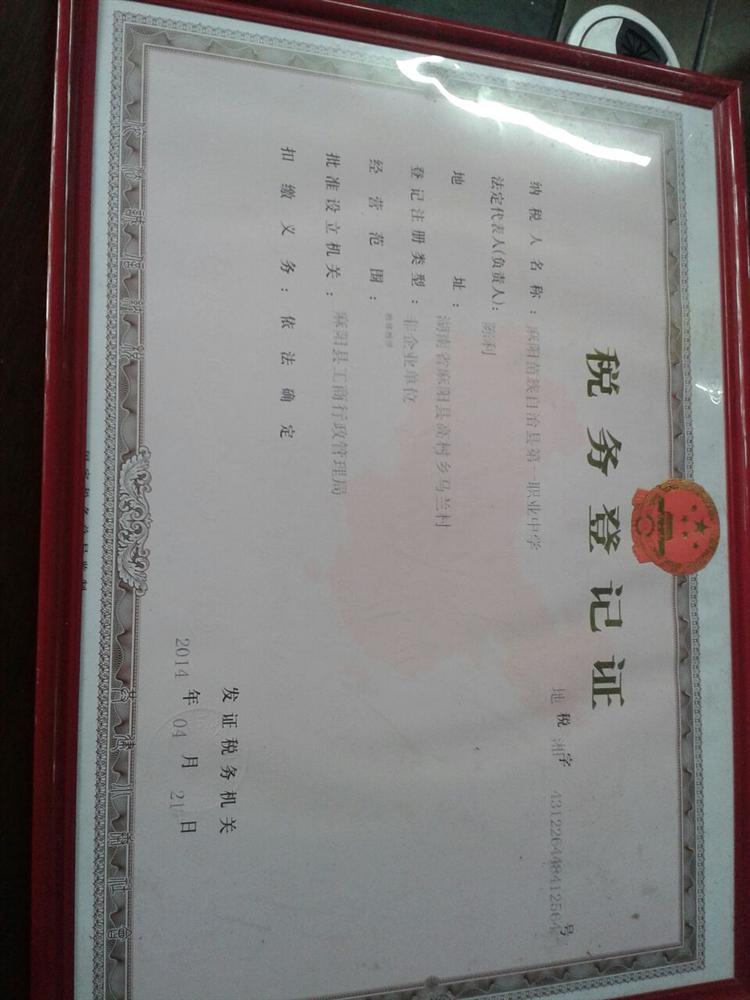 税务登记证
地税 湘 字 431226448412564 号
纳税人名称：麻阳苗族自治县第一职业中学
法定代表人(负责人)：陈利
地址：湖南省麻阳县高村乡马兰村
登记注册类型：非企业单位
经营范围：
批准设立机关：麻阳县工商行政管理局
扣缴义务：依法确定
发证税务机关
2014 年 04 月 21 日